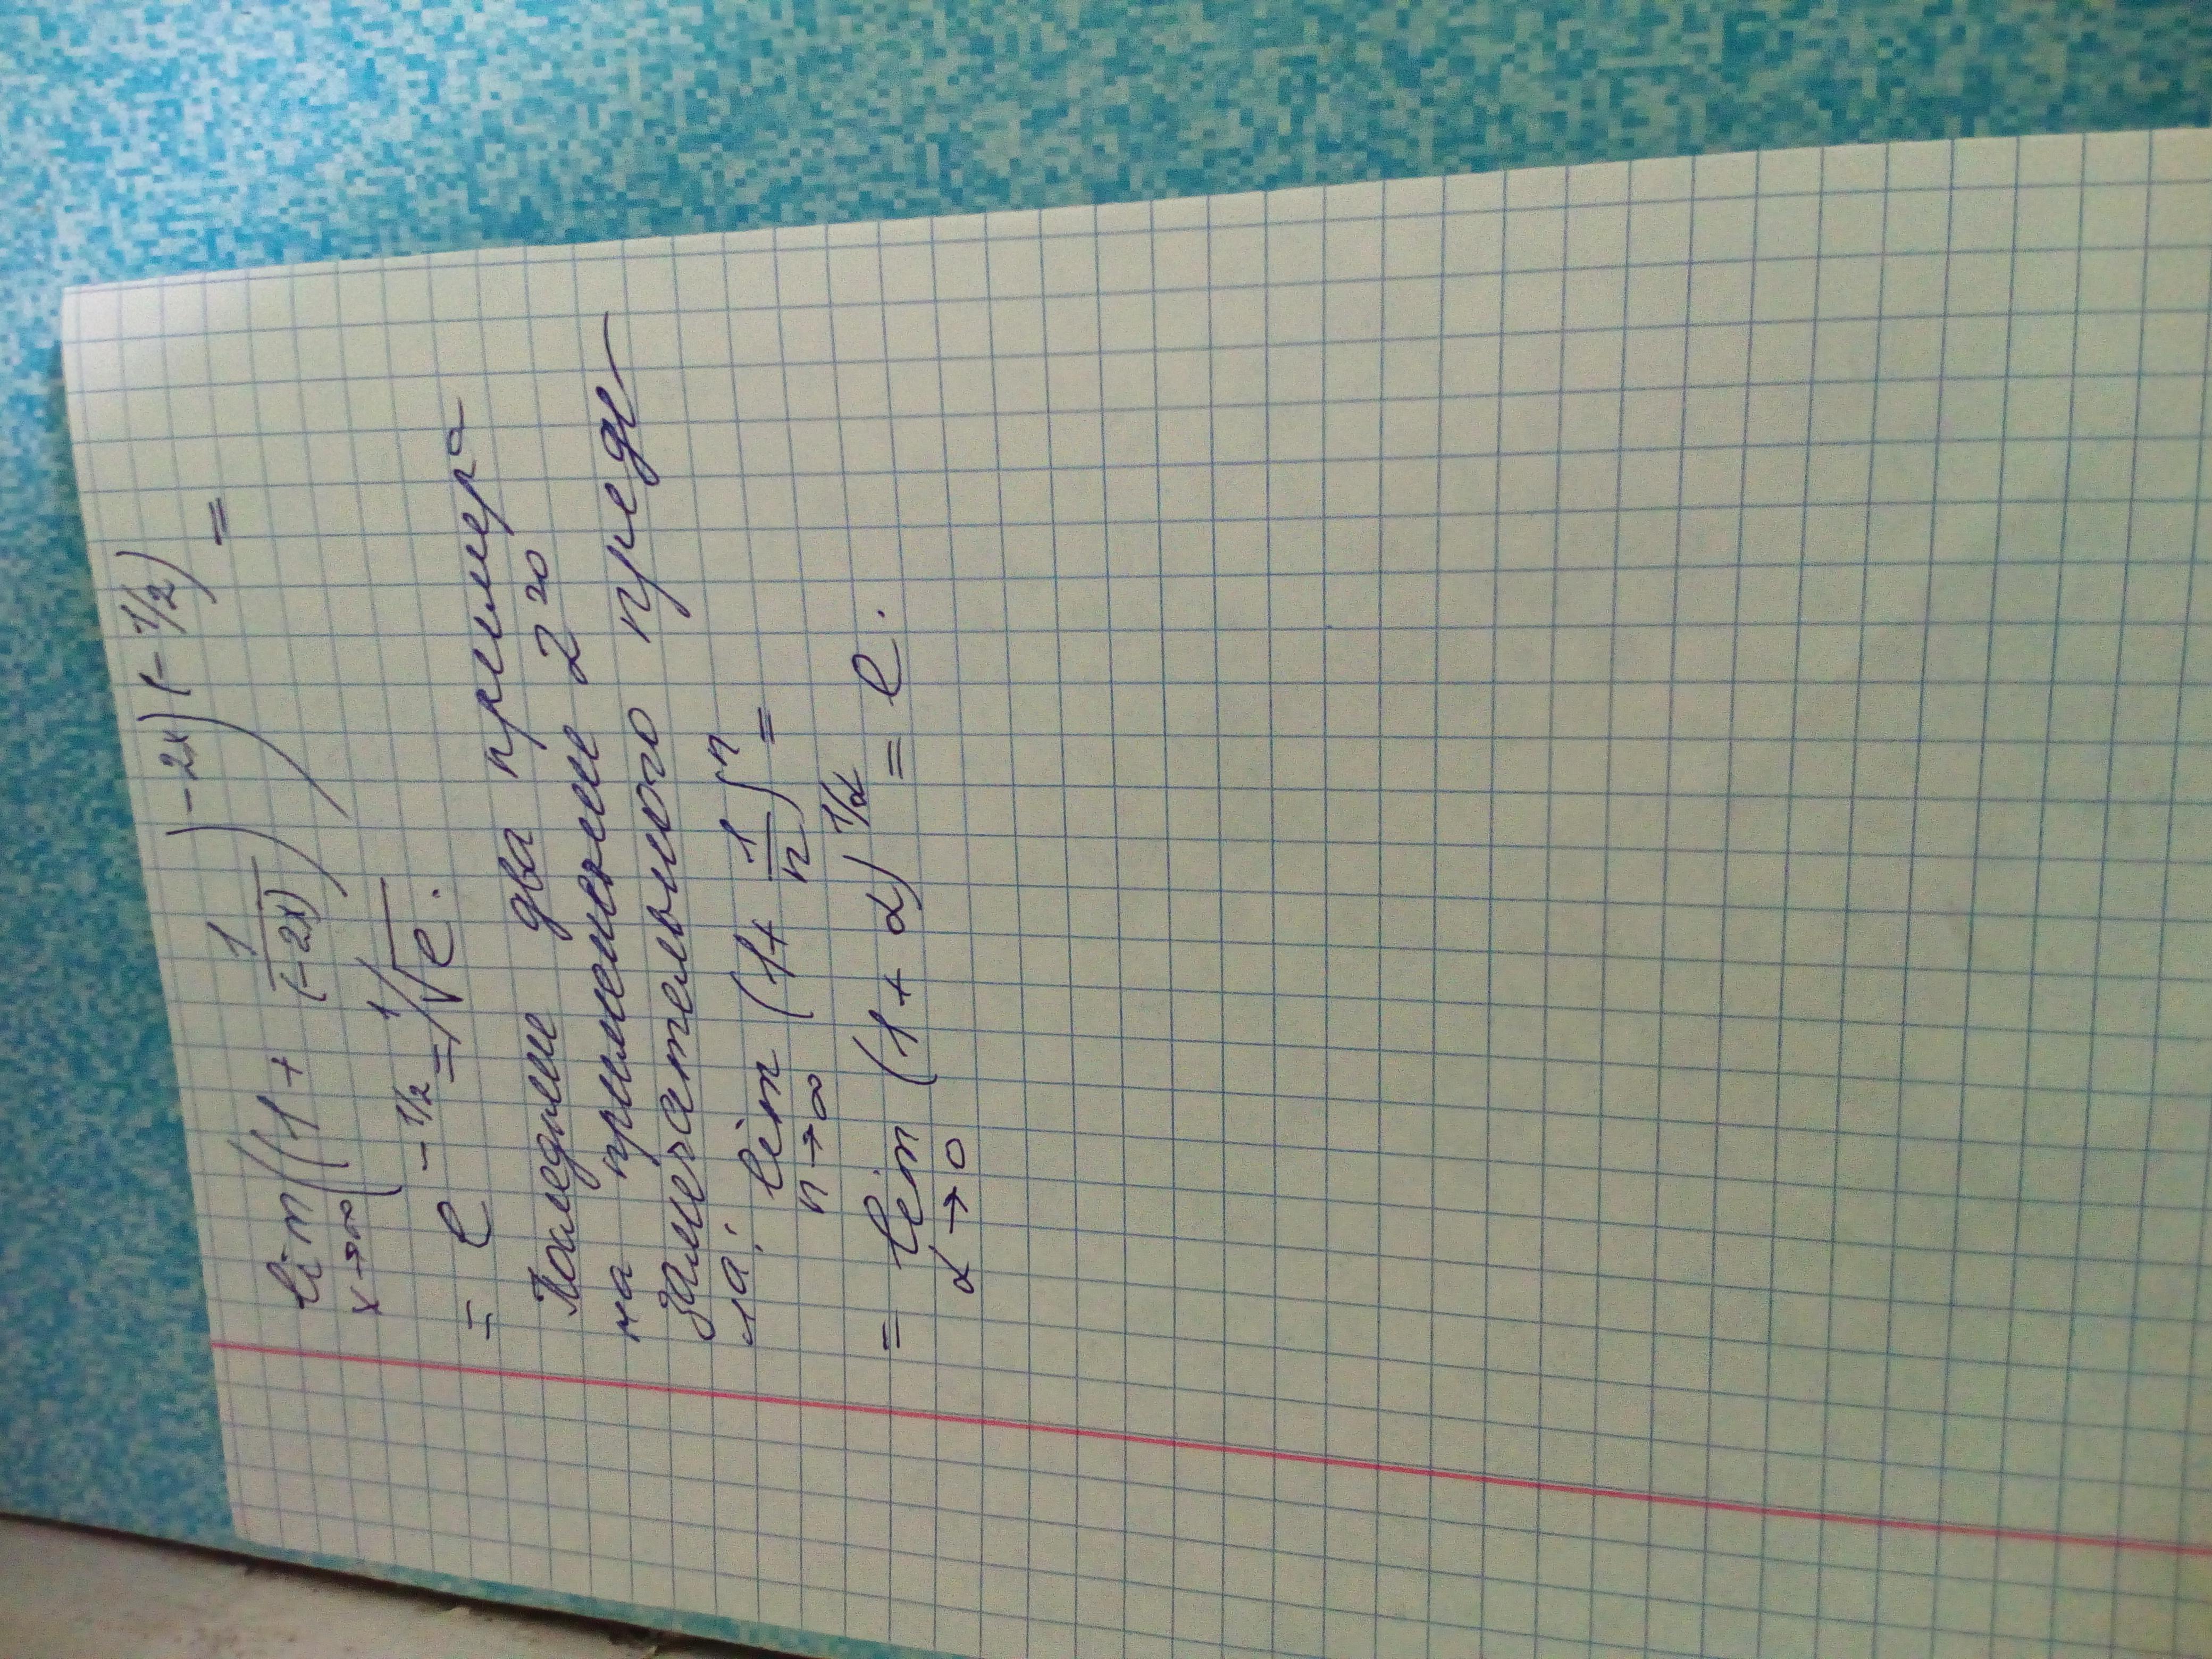 lim ((1 + 1/(-2x))^(-2x))^(-1/2) =
x→∞
= e^(-1/2) = 1/√e.
Последние два примера
на применение 2го
замечательного преде
ла: lim (1 + 1/n)^n =
n→∞
= lim (1 + α)^(1/α) = e.
α→0